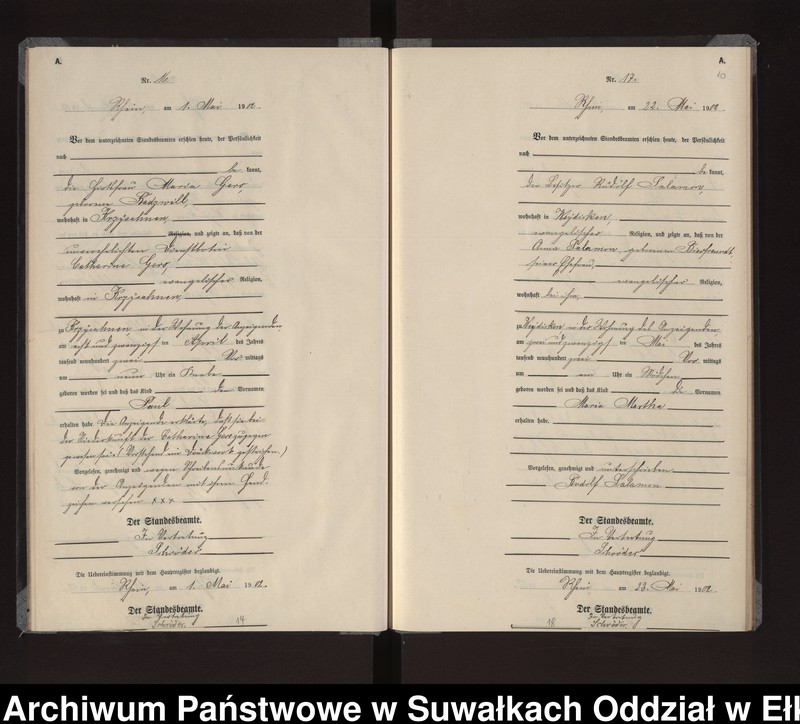 A.
Nr. 16.
Rhein, am 1. Mai 1902.
Vor dem unterzeichneten Standesbeamten erschien heute, der Persönlichkeit
nach
be kannt,
die Maria Gers,
geborene Radzwill,
wohnhaft in Krzysahnen,
Religion, und zeigte an, daß von der
unverehelichten Dienstbotin
Catharina Gers,
evangelischer Religion,
wohnhaft in Krzysahnen,
zu Krzysahnen, in der Wohnung der Anzeigenden
am acht und zwanzigst en April des Jahres
tausend neunhundert zwei Vor mittags
um neun Uhr ein Knabe
geboren worden sei und daß das Kind den Vornamen
Paul
erhalten habe. Die Anzeigende erklärte, daß sie bei
der Niederkunft der Catharina Gers zugegen
gewesen sei. (Vorstehend ein Druckwort gestrichen.)
Vorgelesen, genehmigt und wegen Schreibensunkunde
von der Anzeigenden mit ihrem Hand-
zeichen versehen xxx
Der Standesbeamte.
In Vertretung
Schröder
Die Uebereinstimmung mit dem Hauptregister beglaubigt.
Rhein, am 1. Mai 1902.
Der Standesbeamte.
In Vertretung
Schröder.
14
A.
10
Nr. 17.
Rhein, am 22. Mai 1902.
Vor dem unterzeichneten Standesbeamten erschien heute, der Persönlichkeit
nach
be kannt,
der Besitzer Rudolf Salamon,
wohnhaft in Heydicken,
evangelischer Religion, und zeigte an, daß von der
Anna Salamon, geborenen
seiner Ehefrau,
evangelischer Religion,
wohnhaft bei ihm,
zu Heydicken in der Wohnung des Anzeigenden
am zwei und zwanzigst en Mai des Jahres
tausend neunhundert zwei Vor mittags
um ein Uhr ein Mädchen
geboren worden sei und daß das Kind die Vornamen
Marie Martha
erhalten habe.
Vorgelesen, genehmigt und unterschrieben
Rudolf Salamon
Der Standesbeamte.
In Vertretung
Schröder
Die Uebereinstimmung mit dem Hauptregister beglaubigt.
Rhein am 23. Mai 1902.
Der Standesbeamte.
In Vertretung
Schröder.
18
Archiwum Państwowe w Suwałkach Oddział w Eł